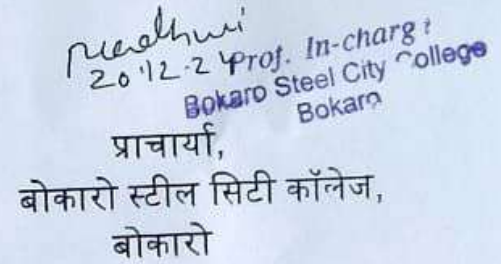 Madhuri
20.12.24 Prof. In-charge
Bokaro Steel City College
Bokaro
प्राचार्या,
बोकारो स्टील सिटी कॉलेज,
बोकारो